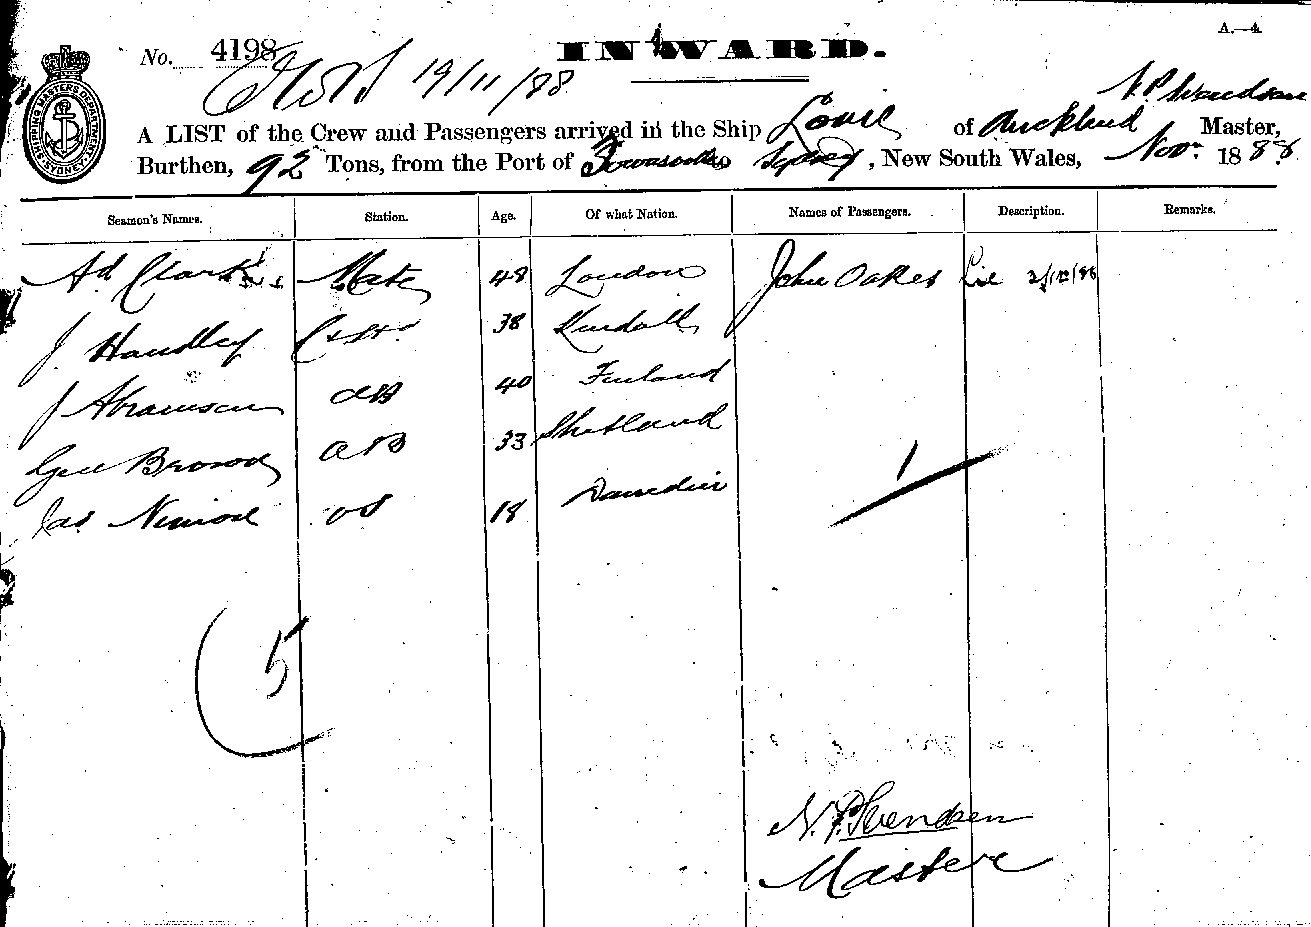 A.—4.
No. 4198
INWARD.
19/11/88
N. P. Svendsen
A LIST of the Crew and Passengers arrived in the Ship Louie of Auckland Master,
Burthen, 92 Tons, from the Port of Sydney, New South Wales, Novr. 1888
SHIPPING MASTERS DEPARTMENT SYDNEY
Seamen's Names. Station. Age. Of what Nation. Names of Passengers. Description. Remarks.
Ad Clark Mate 48 London John Oakes
J Handley 38 Kendall
J Abramsen AB 40 Finland
Geo Brown AB 33 Shetland
Jas OS 18 Dunedin
1
5
N. P. Svendsen
Master